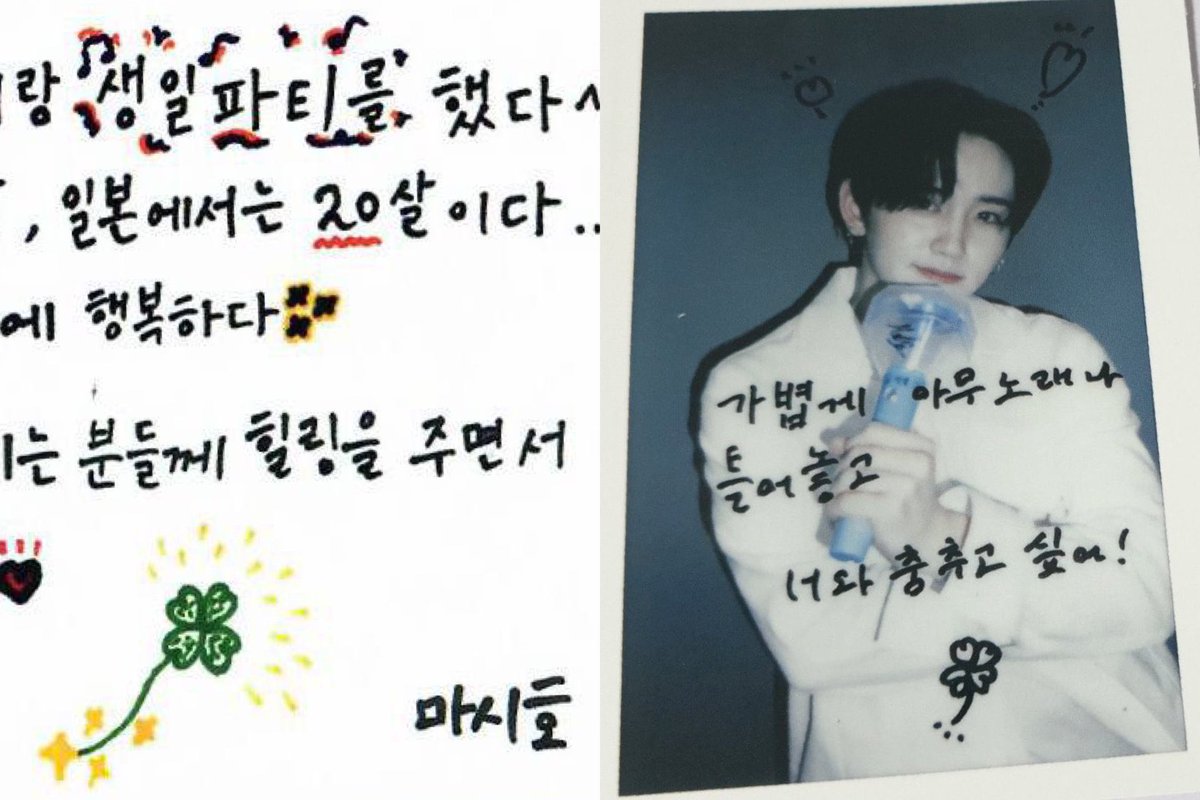 랑 생일파티를 했다^
, 일본에서는 20살이다..
에 행복하다
는 분들께 힐링을 주면서
마시호
가볍게 아무노래나
틀어놓고
너와 춤추고 싶어!